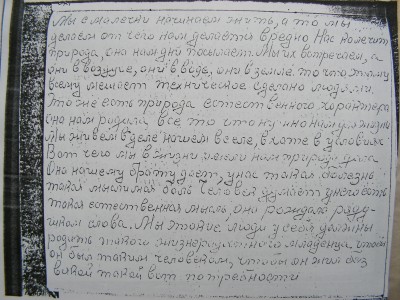 Мы с малечки начинаем жить, а то мы
делаем от чего нам делается вредно Нас калечит
природа, она нам дни посылает. Мы их встречаем, а
они в воздухе, они в воде, они в земле. то что этому
всему мешает техническое сделано людями.
То же есть природа естественного характера
она нам родила все то что нужно нам для жизни
Мы живем в деле нашем в селе, в хате в условиях
Вот чего мы в жизни имели нам природа дала
Она нашему брату дает, у нас такая болезнь
такая мыслимая боль человек думает у него есть
такая естественная мысль, она рождала
слова. Мы такие люди у себя должны
родить такого жизнерадостного младенца, чтобы
он был таким человеком, чтобы он жил без
всякой такой вот потребности